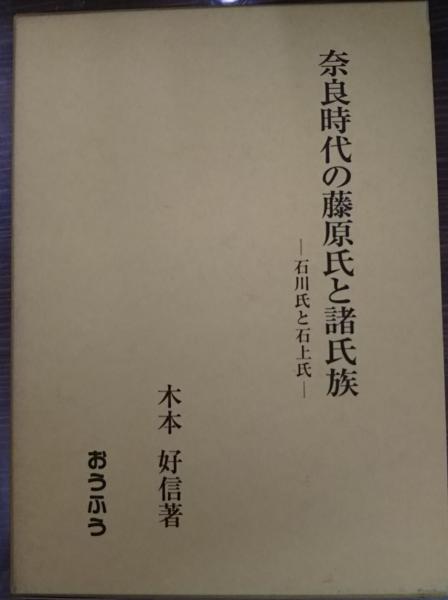 奈良時代の藤原氏と諸氏族
―石川氏と石上氏―
木本 好信著
おうふう